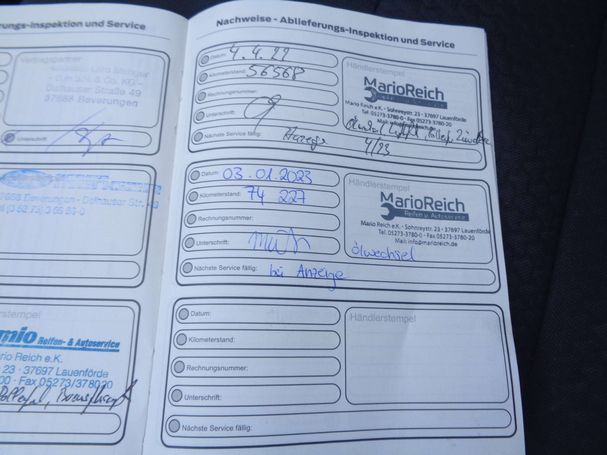 rungs-Inspektion und Service
Vertragspartner
Dalhauser Straße 49
37688 Beverungen
Unterschrift:
Händlerstempel
mio Reifen- & Autoservice
Mario Reich e.K.
23 - 37697 Lauenförde
00 - Fax 05273/378020
Nachweise - Ablieferungs-Inspektion und Service
Datum: 4.4.22
Kilometerstand: 56568
Rechnungsnummer:
Unterschrift:
Nächste Service fällig: Anzeige 4/23
Händlerstempel
MarioReich
Mario Reich e.K. - Sohnreystr. 23 - 37697 Lauenförde
Tel. 05273-3780-0 - Fax 05273-3780-20
Mail: info@marioreich.de
Datum: 03.01.2023
Kilometerstand: 74 227
Rechnungsnummer:
Unterschrift:
Nächste Service fällig: bei Anzeige
Händlerstempel
MarioReich
Reifen u. Autoservice
Mario Reich e.K. - Sohnreystr. 23 - 37697 Lauenförde
Tel. 05273-3780-0 - Fax 05273-3780-20
Mail: info@marioreich.de
Ölwechsel
Datum:
Kilometerstand:
Rechnungsnummer:
Unterschrift:
Nächste Service fällig:
Händlerstempel